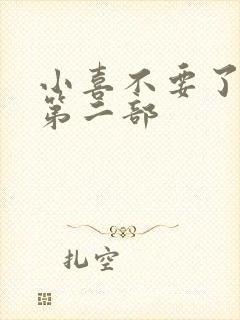 小喜不要了
第二部
扎空